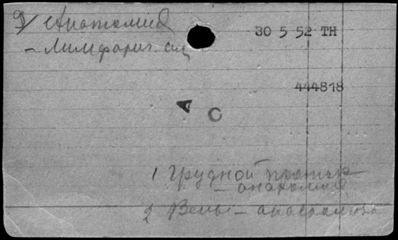 9/ Анатомия
- Лимфатич. сис
30 5 52 TH
444818
A
C
1 Грудной проток
- анатомия
2 Вены - анастомозы